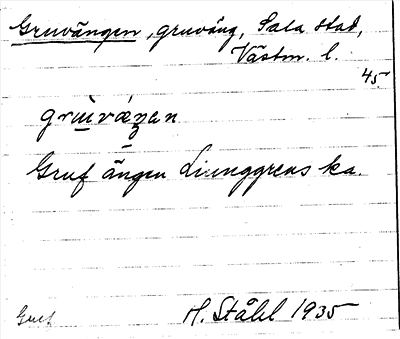 Gruvängen, gruväng, Sala stad,
Västm. l.
45
Gruf ängen Ljunggrens ka.
Gruf H. Ståhl 1935